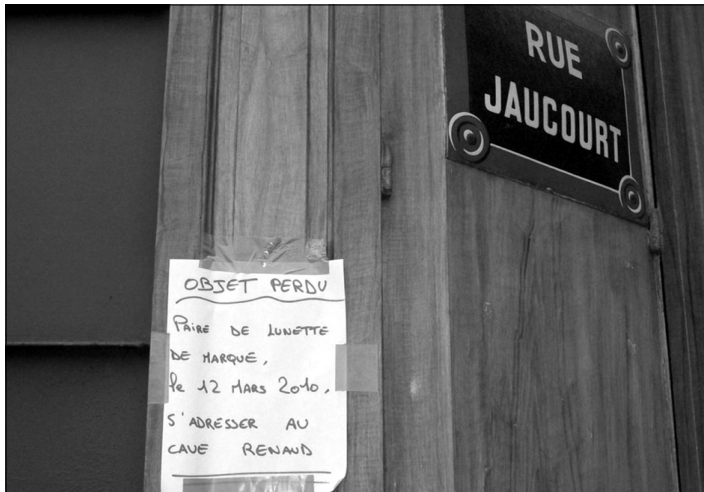 RUE
JAUCOURT
OBJET PERDU
PAIRE DE LUNETTE
DE MARQUE,
le 12 MARS 2010,
S'ADRESSER AU
CAVE RENAUD